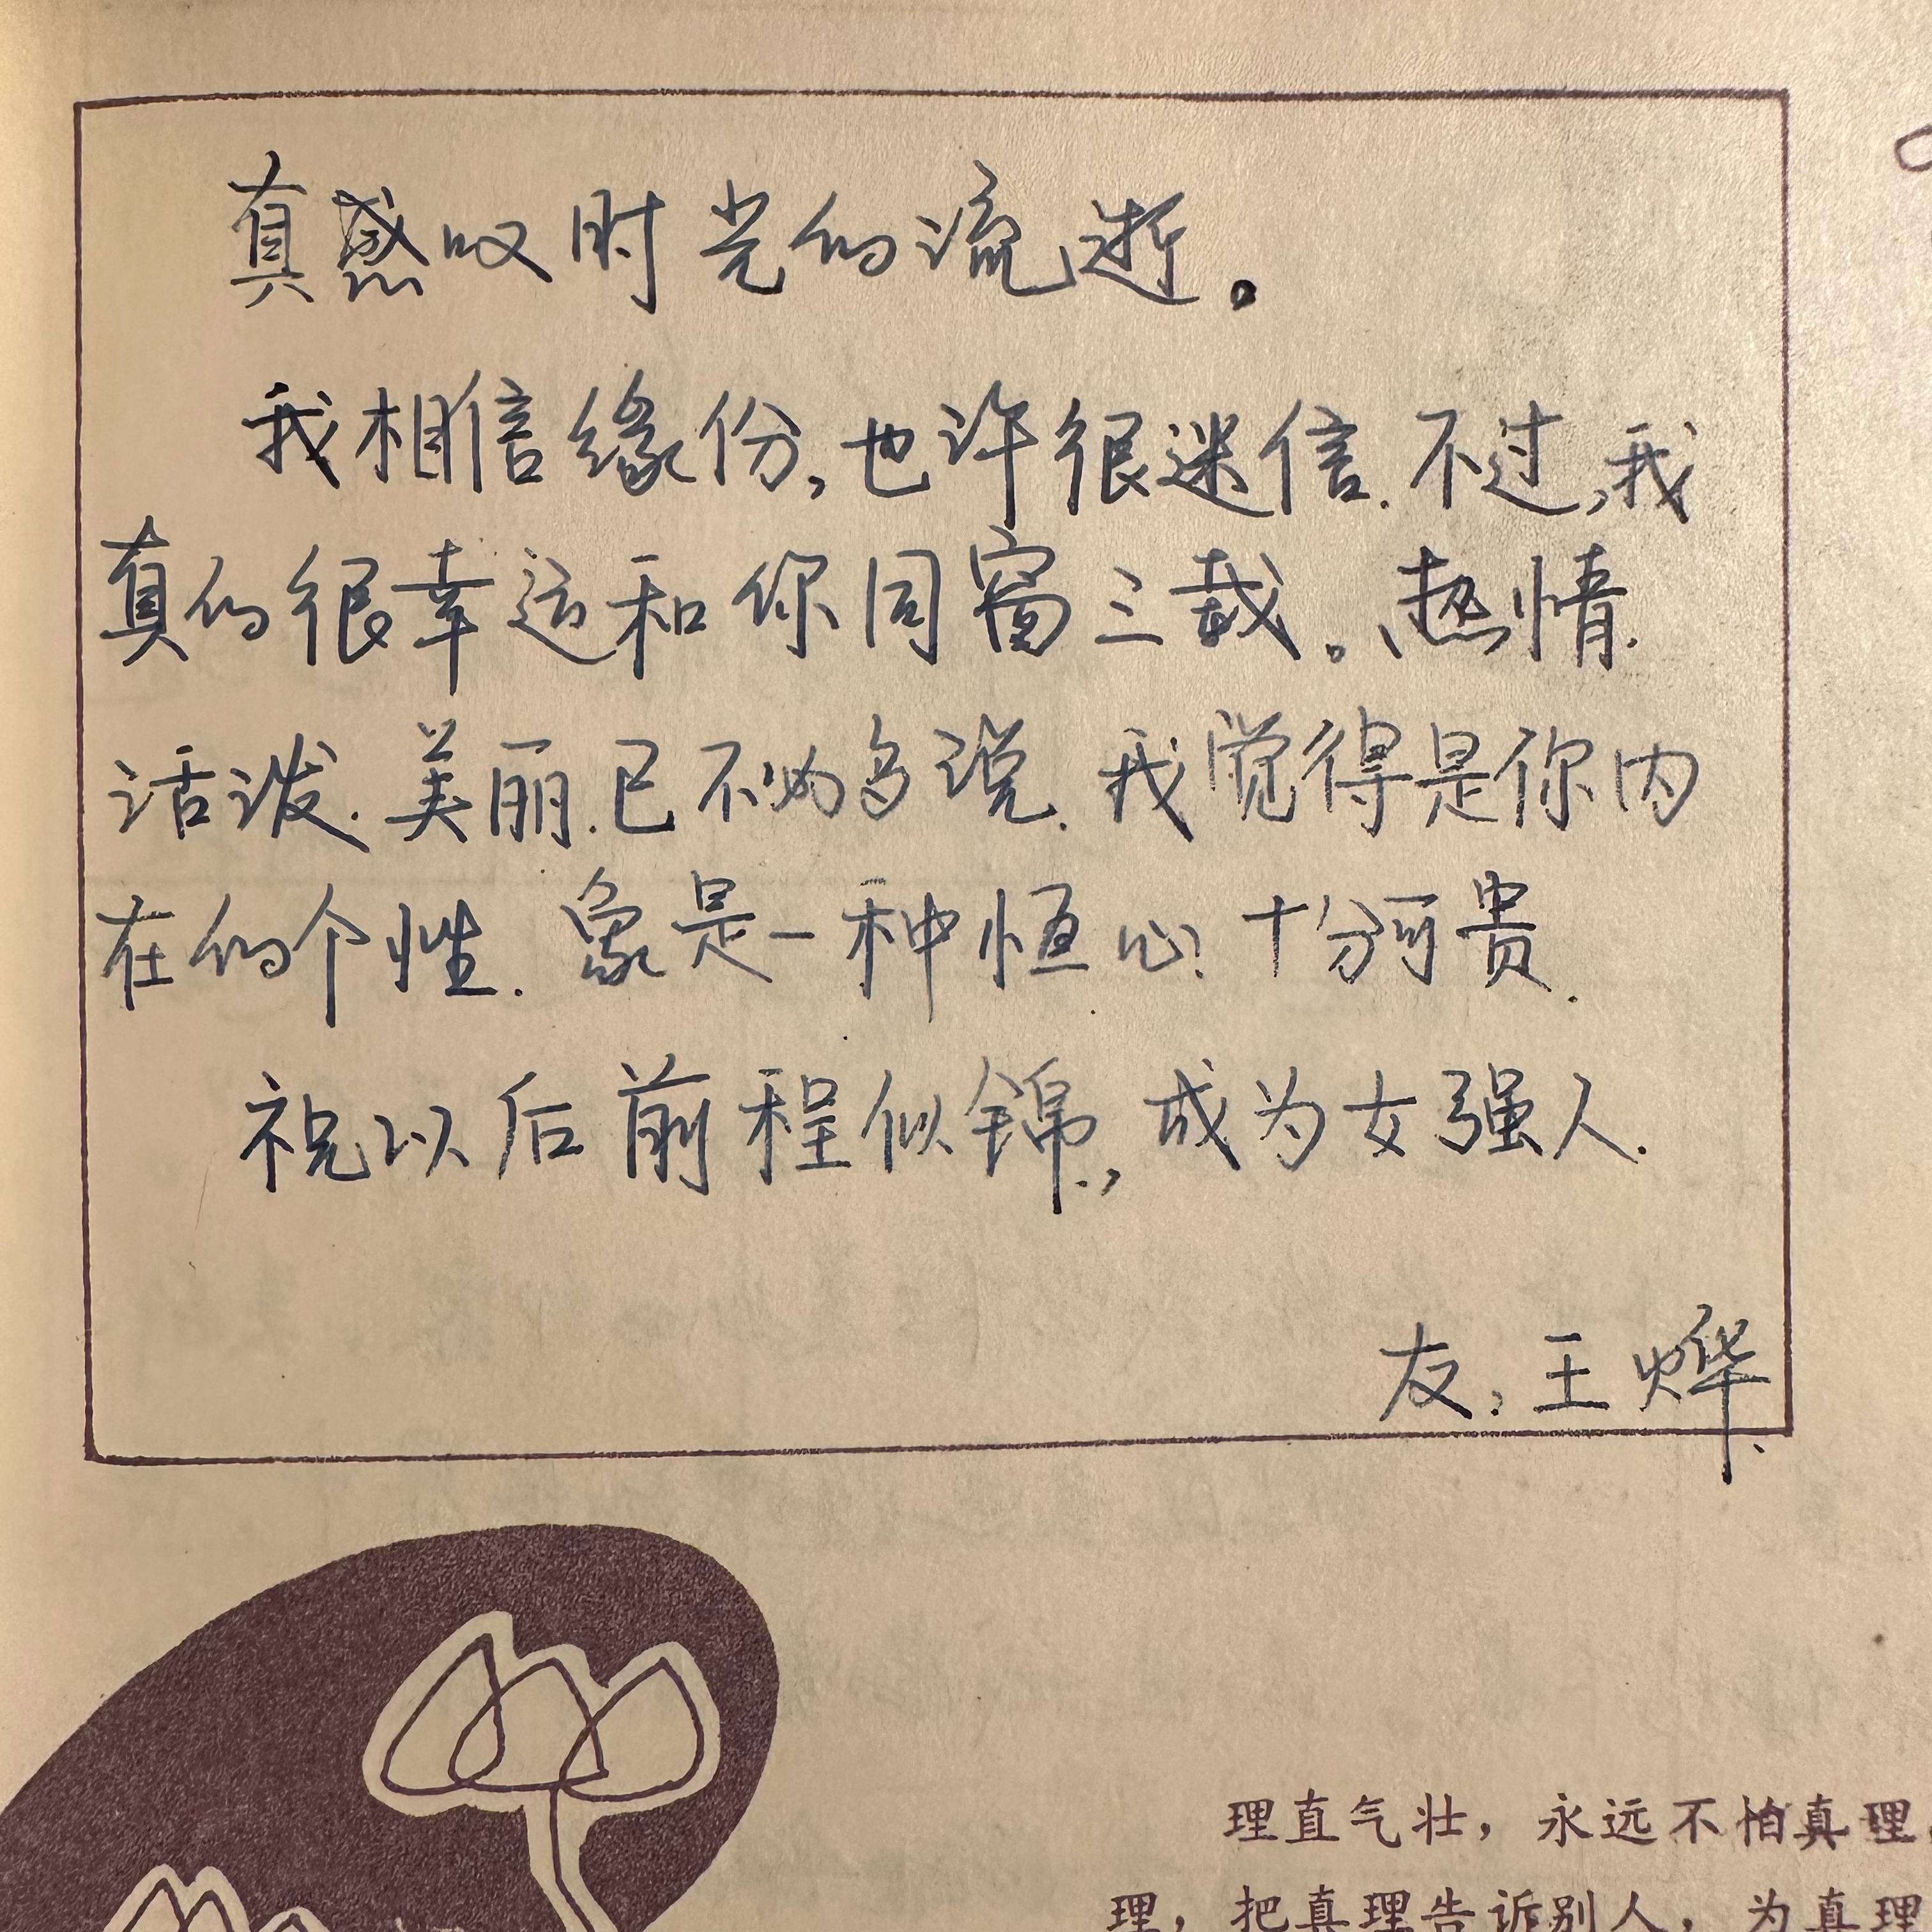 真感叹时光的流逝。
我相信缘份,也许很迷信.不过,我
真的很幸运和你同窗三载。热情.
活泼.美丽.已不必多说.我觉得是你内
在的个性.象是一种恒心!十分可贵.
祝以后前程似锦.,成为女强人.
友:王烨.
理直气壮，永远不怕真理
理，把真理告诉别人，为真理